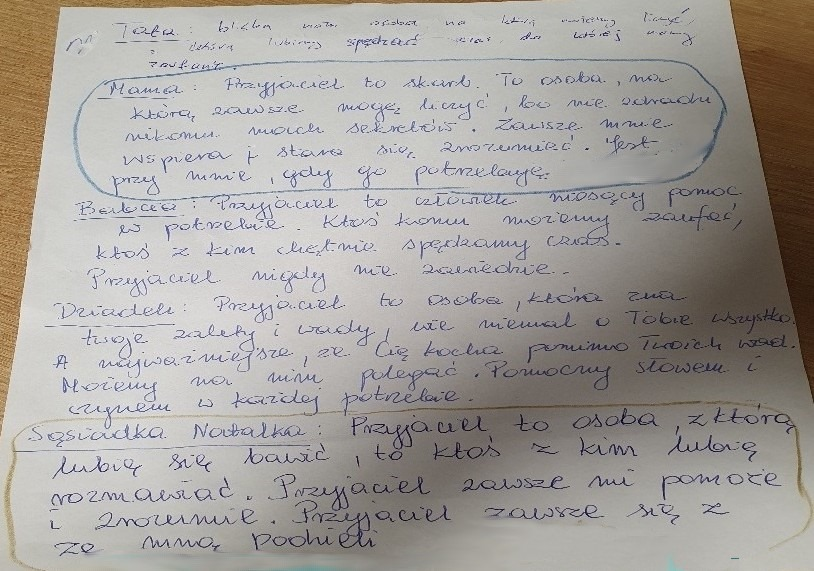 Tata: bliska nam osoba na którą możemy liczyć,
z którą lubimy spędzać czas do której mamy
zaufanie.
Mama: Przyjaciel to skarb. To osoba, na
którą zawsze mogę liczyć, bo nie zdradzi
nikomu moich sekretów. Zawsze mnie
wspiera i stara się zrozumieć. Jest
przy mnie, gdy go potrzebuję.
Babcia: Przyjaciel to człowiek niosący pomoc
w potrzebie. Ktoś komu możemy zaufać,
ktoś z kim chętnie spędzamy czas.
Przyjaciel nigdy nie zawiedzie.
Dziadek: Przyjaciel to osoba, która zna
twoje zalety i wady, wie niemal o Tobie wszystko.
A najważniejsze, że Cię kocha pomimo Twoich wad.
Możemy na nim polegać. Pomocny słowem i
czynem w każdej potrzebie.
Sąsiadka Natalka: Przyjaciel to osoba, z którą
lubię się bawić, to ktoś z kim lubię
rozmawiać. Przyjaciel zawsze mi pomoże
i zrozumie. Przyjaciel zawsze się z
ze mną podzieli